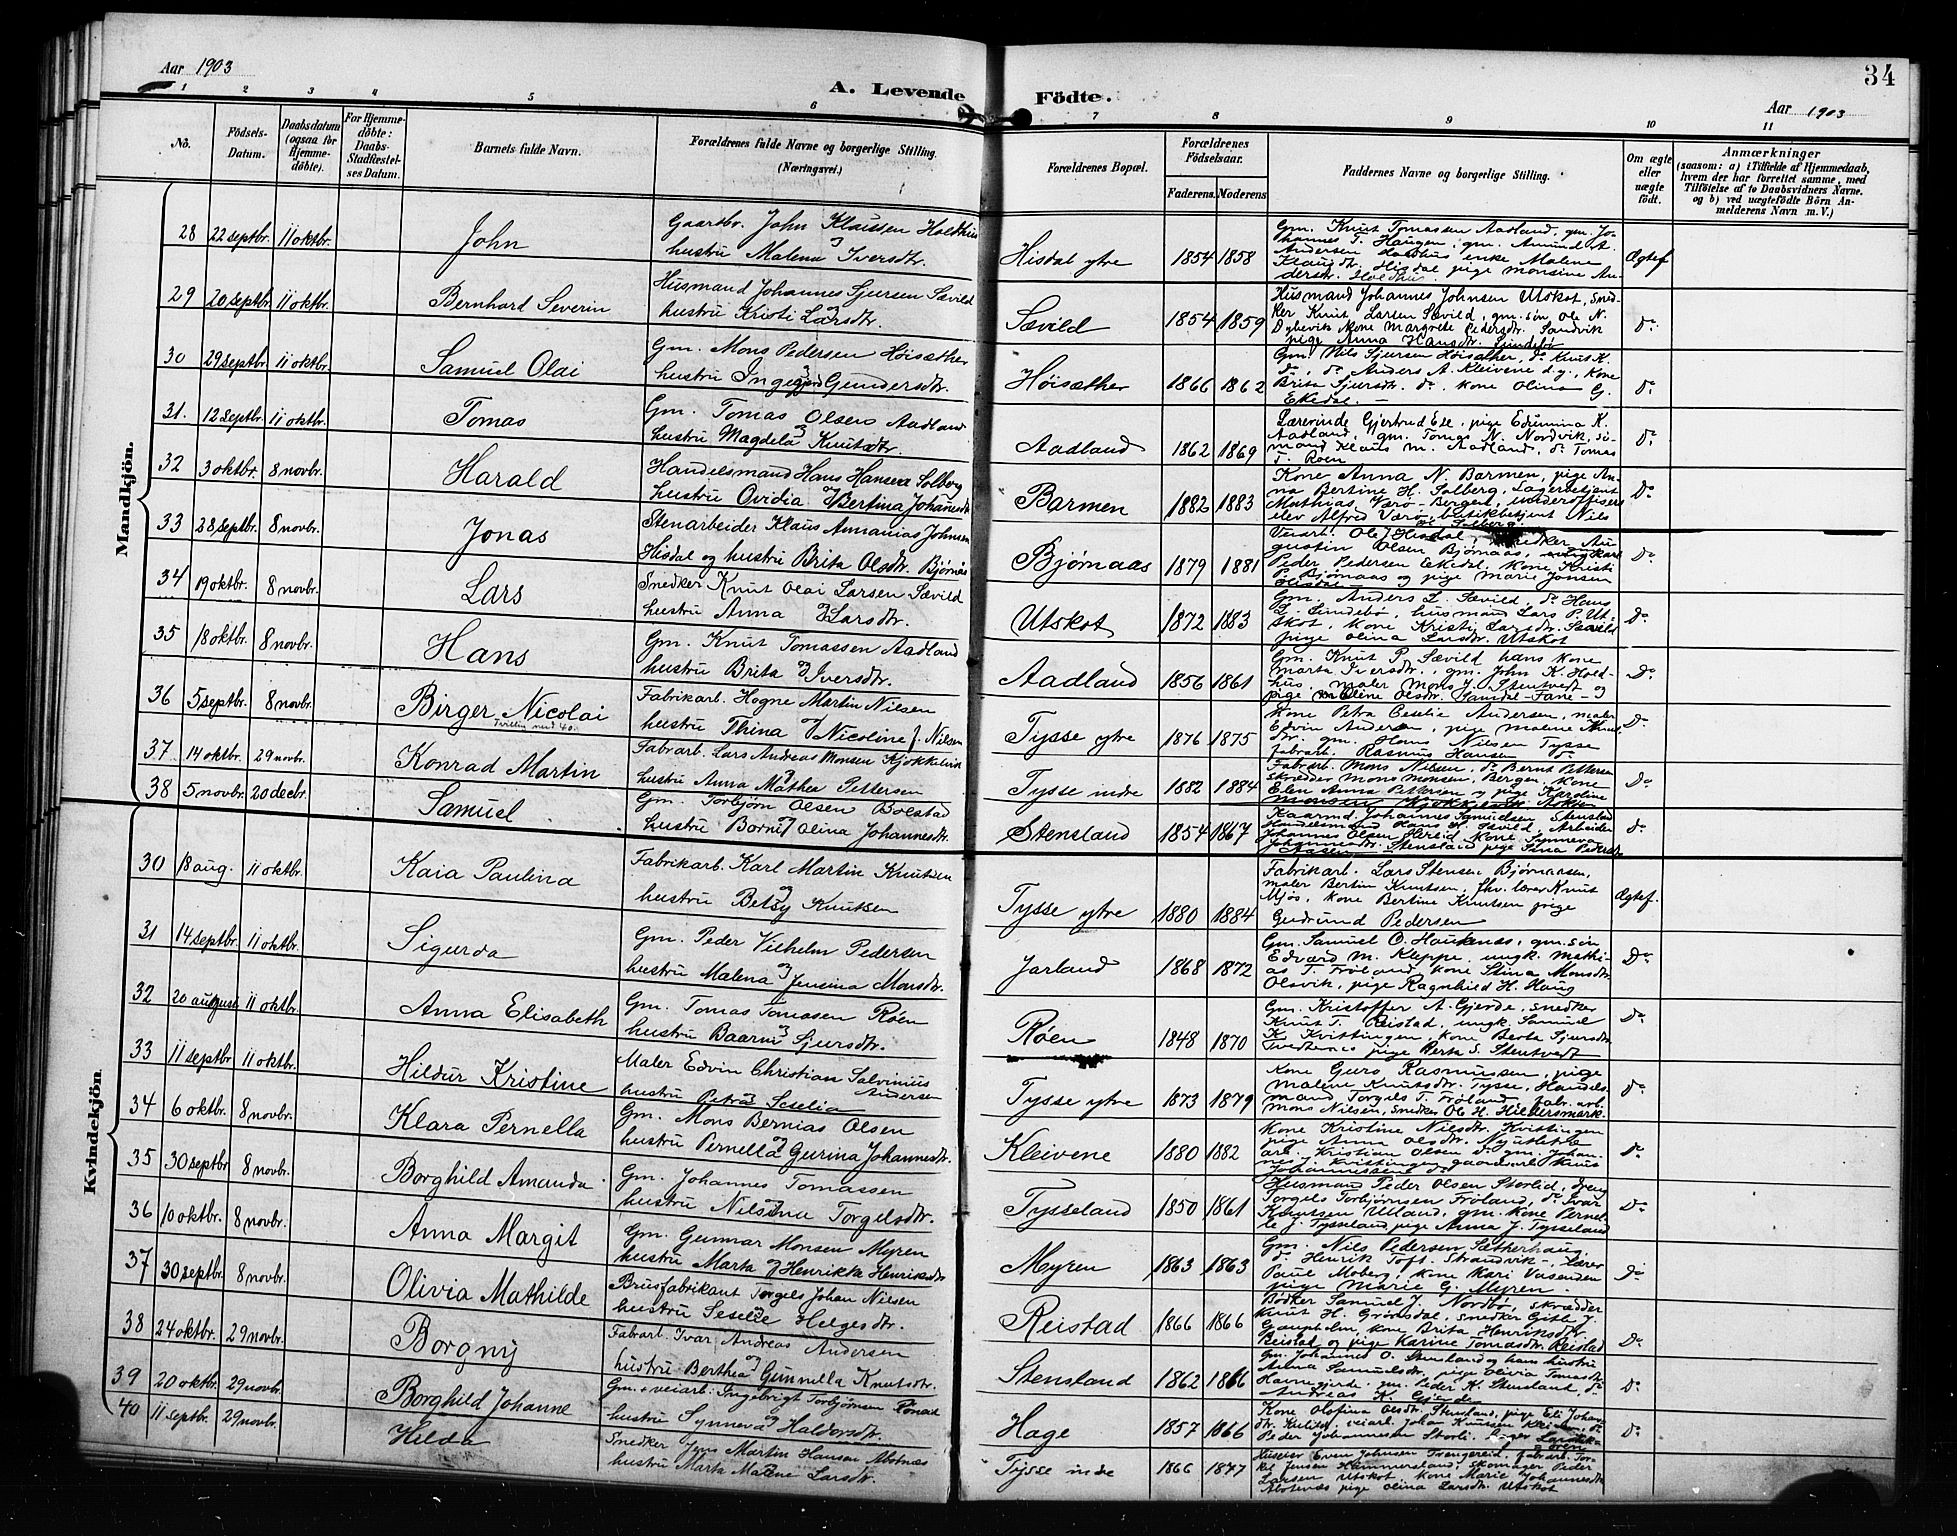 Aar 1903
A. Levende Födte.
34
Aar 1903
1 2 3 4 5 6 7 8 9 10 11
No.
Födsels-Datum.
Daabsdatum (ogsaa for Hjemmedöbte).
For Hjemmedöbte: Daabs-Stadfæstelses Datum.
Barnets fulde Navn.
Forældrenes fulde Navne og borgerlige Stilling. (Næringsvei.)
Forældrenes Bopæl.
Forældrenes Födselsaar.
Faderens. Moderens
Faddernes Navne og borgerlige Stilling.
Om ægte eller uægte födt.
Anmærkninger
(saasom: a) i Tilfælde af Hjemmedaab, hvem der har forrettet samme, med Tilföielse af to Daabsvidners Navne, og b) ved uægtefödte Börn Anmelderens Navn m. V.)
Mandkjön.
28 22 septbr. 11 oktbr. John
Gaardbr. John Klaussen Holdhus
hustru Malena Iversdtr.
Hisdal ytre 1854 1858
Gm. Knut Tomassen Aadland, gm. Johannes T. Haugen, gm. Amund A.
Ægtef
29 20 septbr. 11 oktbr. Bernhard Severin
Husmand Johannes Sjursen Sævild
hustru Kristi Larsdtr.
Sævild 1854 1859
Husmand Johannes Johnsen Utskot, snedker Knut Larsen Sævild, gm. søn Ole N.
Dybevik kone Margrete Pedersdtr. Sandvik
pige Anna Hansdtr. Lindebø
Do
30 29 septbr. 11 oktbr. Samuel Olai
Gm. Mons Pedersen Høisæther
hustru Ingegjerd Gundersdtr.
Høisæther 1866 1862
Gm. Nils Sjursen Høisæther, do Knut K.
do, do Anders A. Kleivene d.y., kone
Brita Sjursdtr. do, kone Olina G.
Ekedal.
Do
31. 12 septbr. 11 oktbr. Tomas
Gm. Tomas Olsen Aadland
hustru Magdela Knutsdtr.
Aadland 1862 1869
Lærerinde Gjertrud Ese, pige Edvinina K.
Aadland, gm. Tomas N. Nordvik, 
Klaus M. Aadland, do Tomas
T. Røen
Do
32 3 oktbr. 8 novbr. Harald
Handelsmand Hans Hansen Solberg
hustru Ovidia Bertina Johansdtr
Barmen 1882 1883
Kone Anna N. Barmen, pige Anna Bertine H. Solberg, Lagerbetjent
Mathias Værø - Bergen, underofficerselev Alfred Værø, butikbetjent Nils
Solberg
Do
33 28 septbr. 8 novbr. Jonas
Stenarbeider Klaus Annanias Johnsen
Hisdal og hustru Brita Olsdtr. Bjørnås
Bjørnaas 1879 1881
Veiarb. Ole J Hisdal, snedker Augustin Olsen Bjørnaas, ungkarl
Peder Pedersen Ekedal, kone Kristi
P. Bjørnaas og pige Marie Jonsen
Do
34 19 oktbr. 8 novbr. Lars
Snedker Knut Olai Larsen Sævild
hustru Anna Larsdtr.
Utskot 1872 1883
Gm. Anders L. Sævild, do Hans
L. Lindebø, husmand Lars P. Utskot, kone Kristi Larsdtr. Sævild
pige Olina Larsdtr. Utskot
Do
35 18 oktbr. 8 novbr. Hans
Gm. Knut Tomassen Aadland
hustru Brita Iversdtr.
Aadland 1856 1861
Gm. Knut P. Sævild hans kone
Marta Iversdtr., gm. John K. Holdhus, maler Mons J. Stentvedt og
pige Oline Olsdtr. Samdal - Fane -
Do
36 5 septbr. 8 novbr. Birger Nicolai
Tvilling med 40.
Fabrikarb. Hogne Martin Nilsen
hustru Thina Nicoline f. Nilsen
Tysse ytre 1876 1875
Kone Petra Ceselie Andersen, maler
Edvin Andersen, pige Malene Knutsdtr., gm. Hans Nilsen Tysse
fabrarb. Rasmus Hansen do
Do
37 14 oktbr. 29 novbr. Konrad Martin
Fabrarb. Lars Andreas Monsen
hustru Anna Mathea Pettersen
Tysse indre 1882 1884
Fabrarb. Mons Nilsen, do Bernt Pettersen
skrædder Mons Monsen, Bergen, kone
Elen Anna Pettersen og pige Karoline
Do
38 5 novbr. 20 decbr. Samuel
Gm. Torbjørn Olsen Bolstad
hustru Olina Johannesdtr.
Stensland 1854 1867
Johannes Samuelsen Stensland
Handelsmand Hans H. Sævild, Arbeider
Do
Kvindekjön.
30 18 aug. 11 oktbr. Kaia Paulina
Fabrikarb. Karl Martin Knutsen
hustru Betsy Knutsen
Tysse ytre 1880 1884
Fabrikarb. Lars Stensen Bjørnaasen,
maler Bertin Knutsen, fhv. lærer Knut
Mjøs, kone Bertine Knutsen pige
Gudrund Pedersen
Ægtef.
31 14 septbr. 11 oktbr. Sigurda
Gm. Peder Vilhelm Pedersen
hustru Malena Jensina Monsdtr.
Jarland 1868 1872
Gm. Samuel O. Hauknæs, gm. søn
Edvard M. Kleppe, ungk. Mathias T. Frøland, kone Stina Monsdtr
Olsvik, pige Ragnhild H. Haug
Do
32 20 august 11 oktbr. Anna Elisabeth
Gm. Tomas Tomassen Røen
hustru Baarni Sjursdtr.
Røen 1848 1870
Gm. Kristoffer A. Gjerde, snedker
Knut T. Reistad, ungk. Samuel
K. Kvittingen, kone Berta Sjursdtr
Tvedtenes pige Berta S. Stentvedt
Do
33 11 septbr. 11 oktbr. Hildur Kristine
Maler Edvin Christian Salvinius
Andersen
hustru Petra Seselia
Tysse ytre 1873 1879
Kone Guro Rasmussen, pige
Malene Knutsdtr. Tysse, Handelsmand Torgils T. Frøland, fabr. arb.
Mons Nilsen, snedker Ole H. Hildersmark.
Do
34 6 oktbr. 8 novbr. Klara Pernella
Gm. Mons Bernias Olsen
hustru Pernella Gurina Johannesdtr.
Kleivene 1880 1882
Kone Kristine Nilsdtr. Kvittingen
pige Anna Olsdtr.
arb. Kristian Olsen do gm. Johannes J. Kvittingen, Knut
Johannessen do
Do
35 30 septbr. 8 novbr. Borghild Amanda.
Gm. Johannes Tomassen
hustru Nilsina Torgelsdtr.
Tysseland 1850 1861
Husmand Peder Olsen Storlid, dreng
Torgels Torbjørnsen Frøland, do Ivar
Knutsen Utland, gm. kone Pernelle J. Tysseland, pige Anna J. Tysseland
Do
36 10 oktbr. 8 novbr. Anna Margit
Gm. Gunnar Monsen Myren
hustru Marta Henrikka Henriksdtr
Myren 1863 1863
Gm. Nils Pedersen Sætherhaug
do Henrik Toft - Strandvik -, Lærer
Paul Moberg, kone Kari
pige Marie G. Myren.
Do
37 30 septbr. 8 novbr. Olivia Mathilde
Brusfabrikant Torgels Johan Nilsen
hustru Seselie Helgesdtr.
Reistad 1866 1866
Bødker Samuel J. Nordbø, skrædder
Knut H. Grønsdal, snedker Gitle J.
Gaupholm, kone Brita Henriksdtr
Reistad og pige Karine Tomasdtr. Reistad
Do
38 24 oktbr. 29 novbr. Borgny
Fabrarb. Ivar Andreas Andersen
hustru Berthea Gunnella Knutsdtr.
Stensland 1862 1866
Gm. Johannes O. Stensland og hans hustru
Anna Samuelsdtr, pige Olivia Tomasdtr
Havnegjerde, gm. Peder K. Stensland, do
Andreas K. Gjerde
Do
39 20 oktbr. 29 novbr. Borghild Johanne
Gm. + veiarb. Ingebrigt Torbjørnsen
hustru Synneva Haldorsdtr.
Hage 1857 1866
Kone Olofina Olsdtr. Stensland, pige Eli Johansdtr. veiarb. Johan Knutsen
Peder Johannessen Storli.
Do
40 11 septbr. 29 novbr. Hilda
Snedker Jens Martin Hansen Abotnæs
hustru Marta Malene Larsdtr.
Tysse indre 1866 1877
Even Johnsen Trengereid, fabrarb. Torkel Jensen Hammersland, Skomager Peder
Larsen Utskot, kone Marie Johannesdtr
Abotnæs pige Olina Larsdtr. Utskot